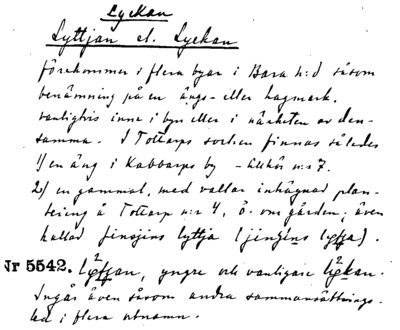 Lyckan
Lyttjan el. Lyckan
förekommer i flera byar i Bara h:d såsom
benämning på en ängs- eller hagmark.
vanligtvis inne i byn eller i närheten av den-
samma. I Tottarps socken finnas således
1) en äng i Kabbarps by - tillhör n:r 7.
2) en gammal, med vallar inhägnad plan-
tering å Tottarp n:r 4, ö. om gården; även
kallad jinsjins lyttja
Nr 5542. yngre och vanligare
Ingår även såsom andra sammansättnings-
led i flera ortnamn.